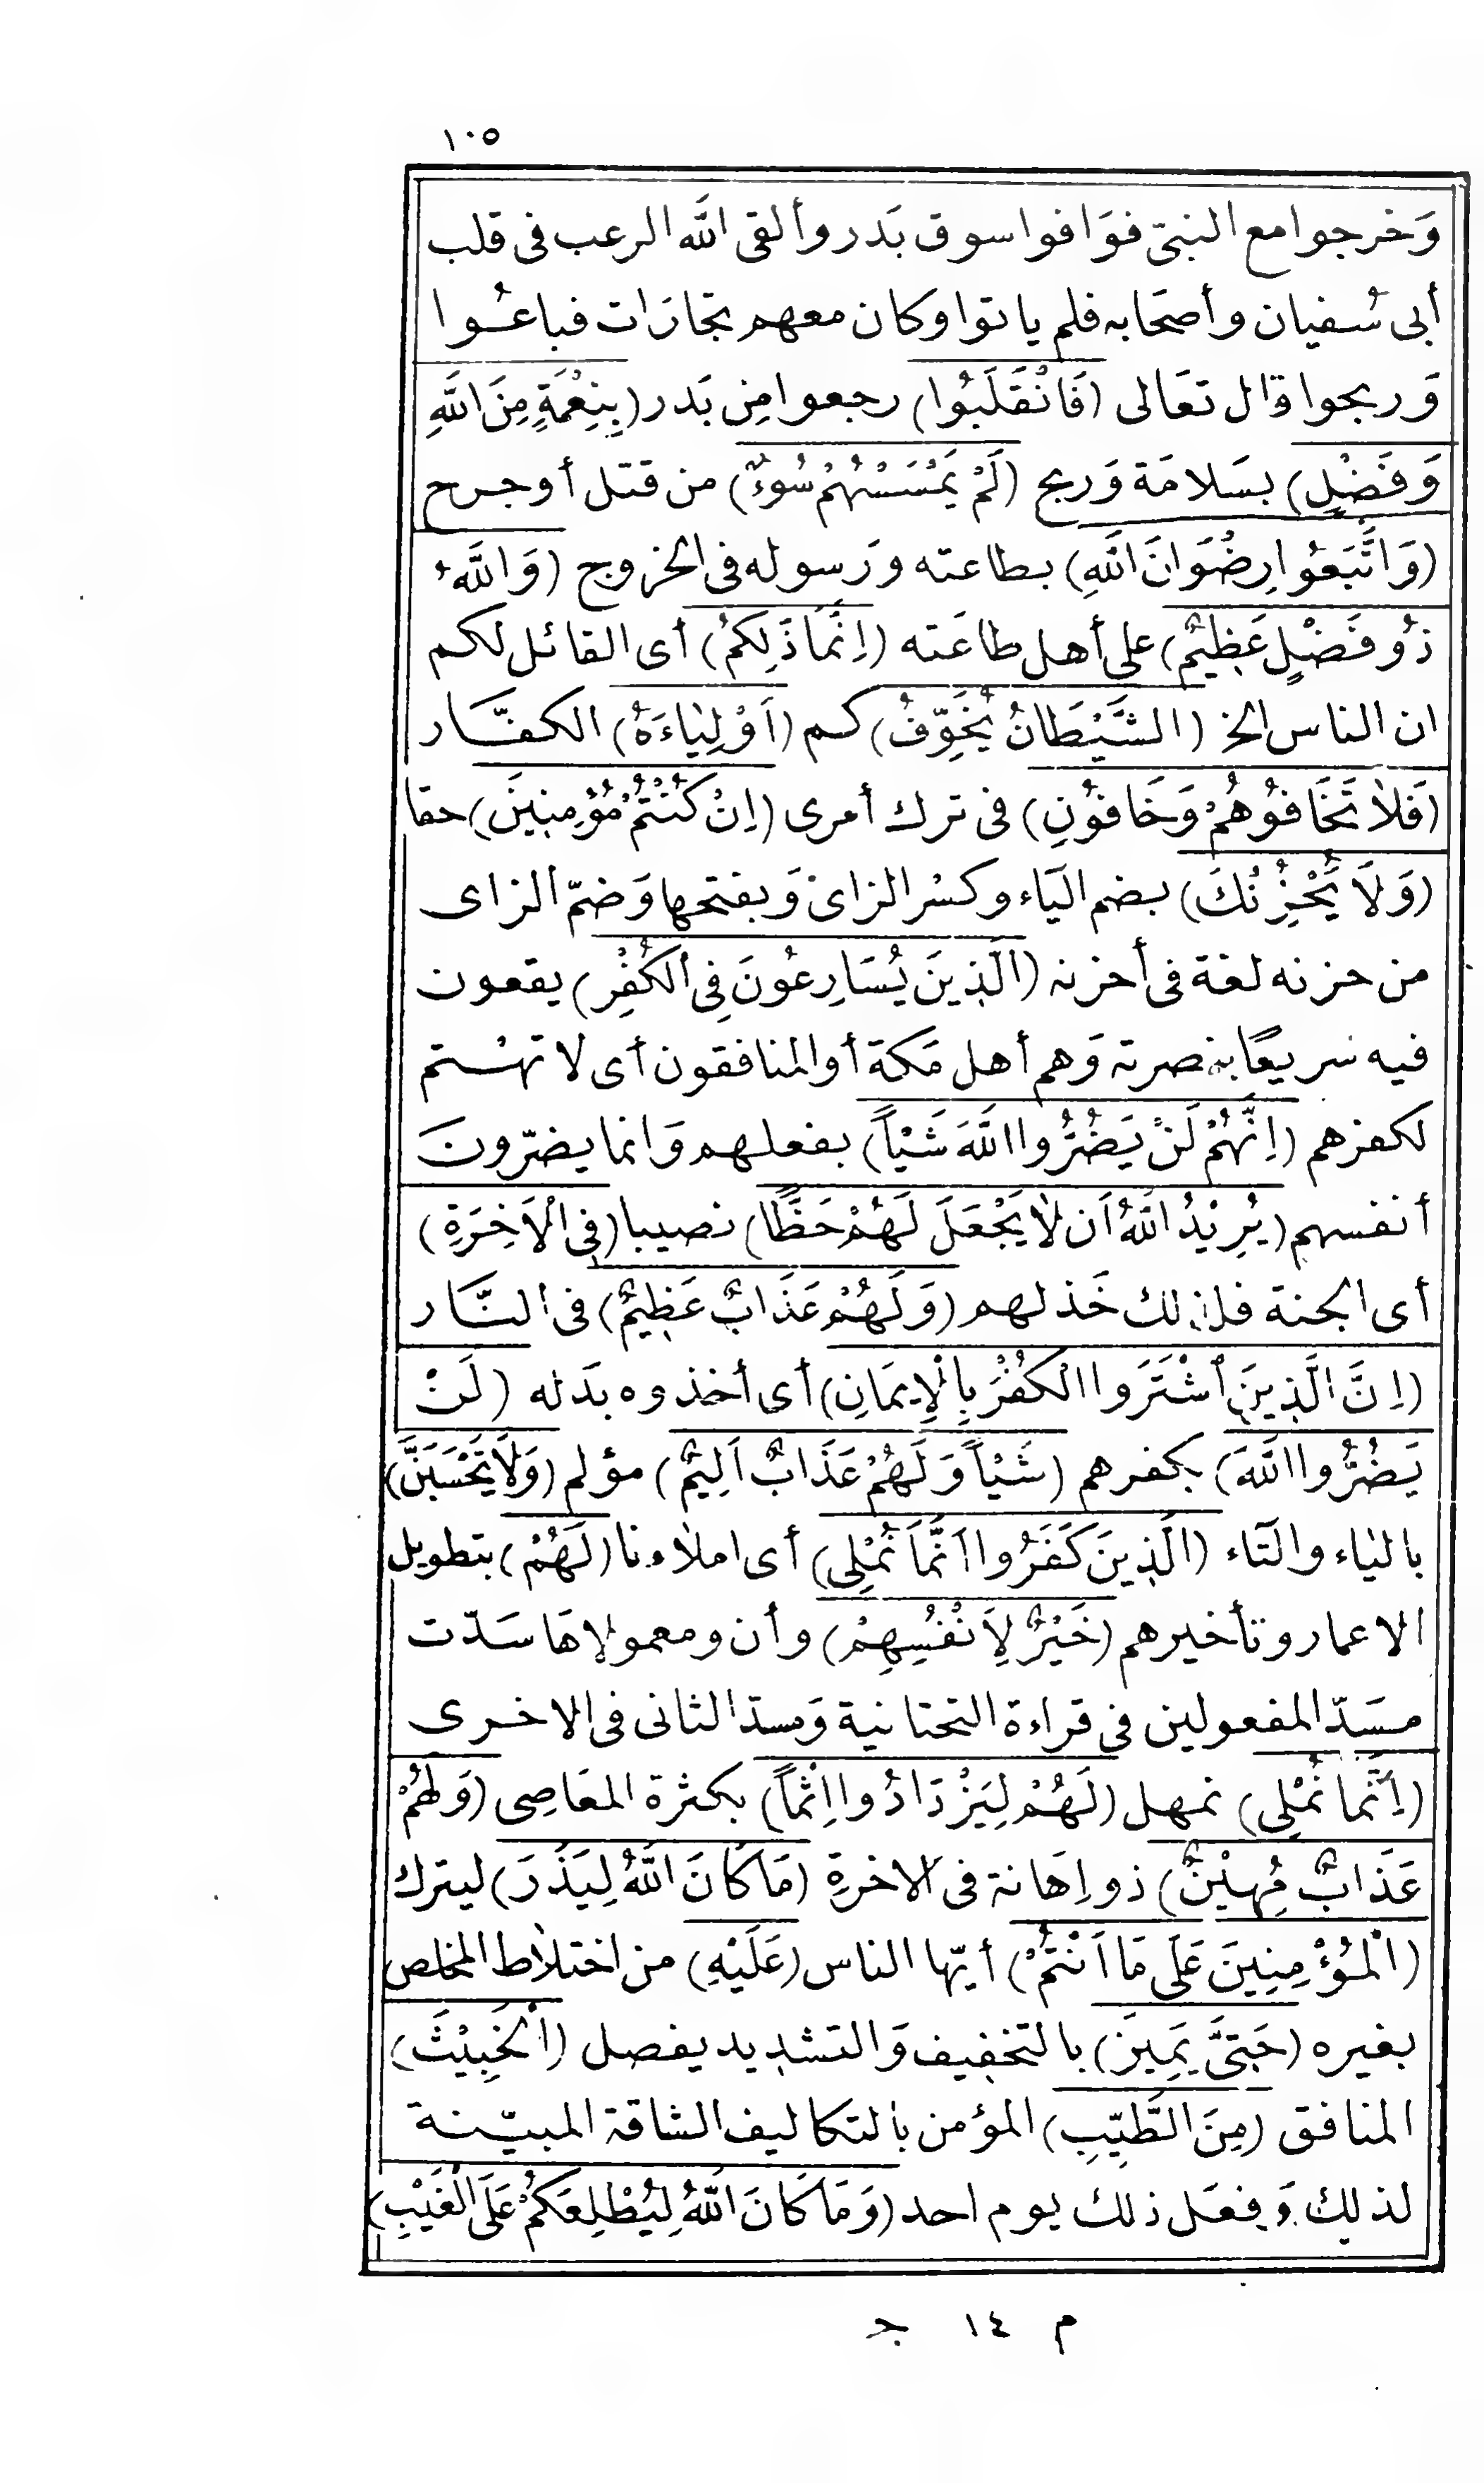 ١٠٥
وَخرجوا مع النبيّ فوَافوا سوق بَدر وألقى الله الرعب فى قلب
أبى سُفيان وأصحَابه فلم ياتوا وكان معهم تجارَات فباعُوا
وَربحوا قال تعَالى (فَانْقَلَبُوا) رجعوا مِن بَدر (بِنِعْمَةٍ مِنَ اللَّهِ
وَفَضْلٍ) بسَلامَة وَربح (لَمْ يَمْسَسْهُمْ سُوءٌ) من قتل أوجرح
(وَاتَّبَعُوا رِضْوَانَ اللَّهِ) بطاعته وَرَسوله فى الخروج (وَاللَّهُ
ذُو فَضْلٍ عَظِيمٌ) على أهل طاعَته (اِنَّمَا ذَلِكُمُ) أى القائل لكم
ان الناس الخ (الشَّيْطَانُ يُخَوِّفُ) كم (اَوْلِيَاءَهُ) الكفّار
(فَلاَ تَخَافُوهُمْ وَخَافُونِ) فى ترك أمرى (اِنْ كُنْتُمْ مُؤْمِنِينَ) حقا
(وَلاَ يُحْزِنْكَ) بضم اليَاء وكسْر الزاى وَبفتحها وَضمّ الزاى
من حزنه لغة فى أحزنه (الَّذِينَ يُسَارِعُونَ فِى الْكُفْرِ) يقعون
فيه سريعًا بنصرته وَهم أهل مَكة أو المنافقون أى لا تهْتم
لكفرهم (اِنَّهُمْ لَنْ يَضُرُّوا اللَّهَ شَيْأً) بفعلهم وَانما يضرّونَ
أنفسهم (يُرِيْدُ اللَّهُ اَن لاَ يَجْعَلَ لَهُمْ حَظًّا) نصيبا (فِى الْاَخِرَةِ)
أى الجنة فلذلك خَذلهم (وَلَهُمْ عَذَابٌ عَظِيمٌ) فى النّار
(اِنَّ الَّذِينَ اشْتَرَوا الْكُفْرَ بِالْاِيمَانِ) أى أخذوه بدَله (لَنْ
يَضُرُّوا اللَّهَ) بكفرهم (شَيْأً وَلَهُمْ عَذَابٌ اَلِيمٌ) مؤلم (وَلاَ يَحْسَبَنَّ)
باليَاء والتَاء (الَّذِينَ كَفَرُوا اَنَّمَا نُمْلِى) أى املاءنا (لَهُمْ) بتطويل
الاعمار وتأخيرهم (خَيْرٌ لِاَنْفُسِهِمْ) وأن ومعمولاهَا سَدّت
مسَدّ المفعولين فى قراءة التحتانية وَمسدّ الثانى فى الاخرى
(اِنَّمَا نُمْلِى) نمهل (لَهُمْ لِيَزْدَادُوا اِثْماً) بكثرة المعَاصِى (وَلَهُمْ
عَذَابٌ مُهِيْنٌ) ذو اِهَانة فى الاخرةِ (مَا كَانَ اللَّهُ لِيَذَرَ) ليترك
(الْمُؤْمِنِينَ عَلَى مَا اَنْتُمْ) أيّها الناس (عَلَيْهِ) من اختلاط المخلص
بغيره (حَتىَّ يَمِيزَ) بالتخفيف وَالتشديد يفصل (اَلْخَبِيْثَ)
المنافق (مِنَ الطَّيِّبِ) المؤمن بالتكاليف الشاقة المبيّنة
لذلك وَفعَل ذلك يوم احد (وَمَا كَانَ اللَّهُ لِيُطْلِعَكُمْ عَلَى الْغَيْبِ)
م ١٤ ج